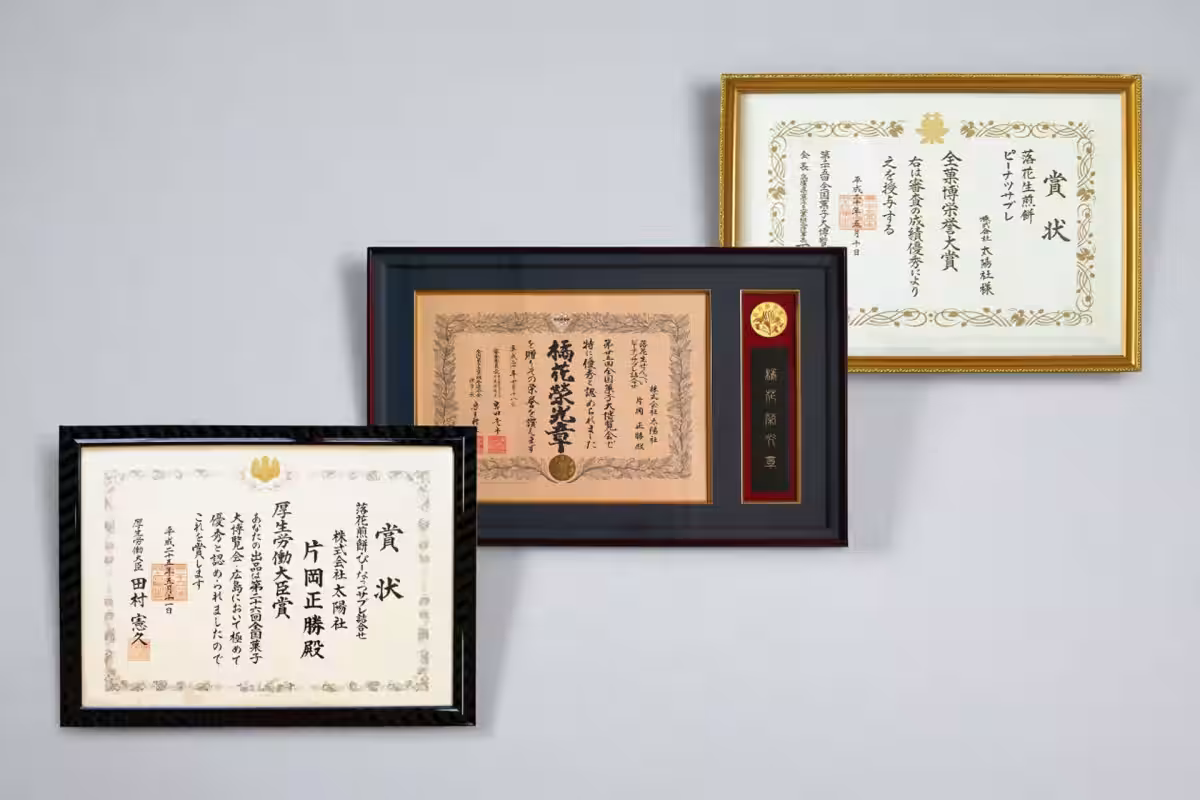 賞状
落花生煎餅
ピーナツサブレ
株式会社 太陽社 様
全菓博栄誉大賞
右は審査の成績優秀により
之を授与する
平成二十年五月十日
第二十五回全国菓子大博覧
会長
落花生せんべい
株式会社 太陽社
片岡 正勝 殿
第廿五回全国菓子大博覧会で
特に優秀と認められました
橘花榮光章
を贈りその栄誉を讃えます
橘花榮光章
賞状
落花煎餅・ぴーなつサブレ詰合せ
株式会社 太陽社
片岡正勝殿
厚生労働大臣賞
あなたの出品は第二十六回全国菓子
大博覧会・広島において極めて
優秀と認められましたので
これを賞します
平成二十五年五月
厚生労働大臣 田村憲久